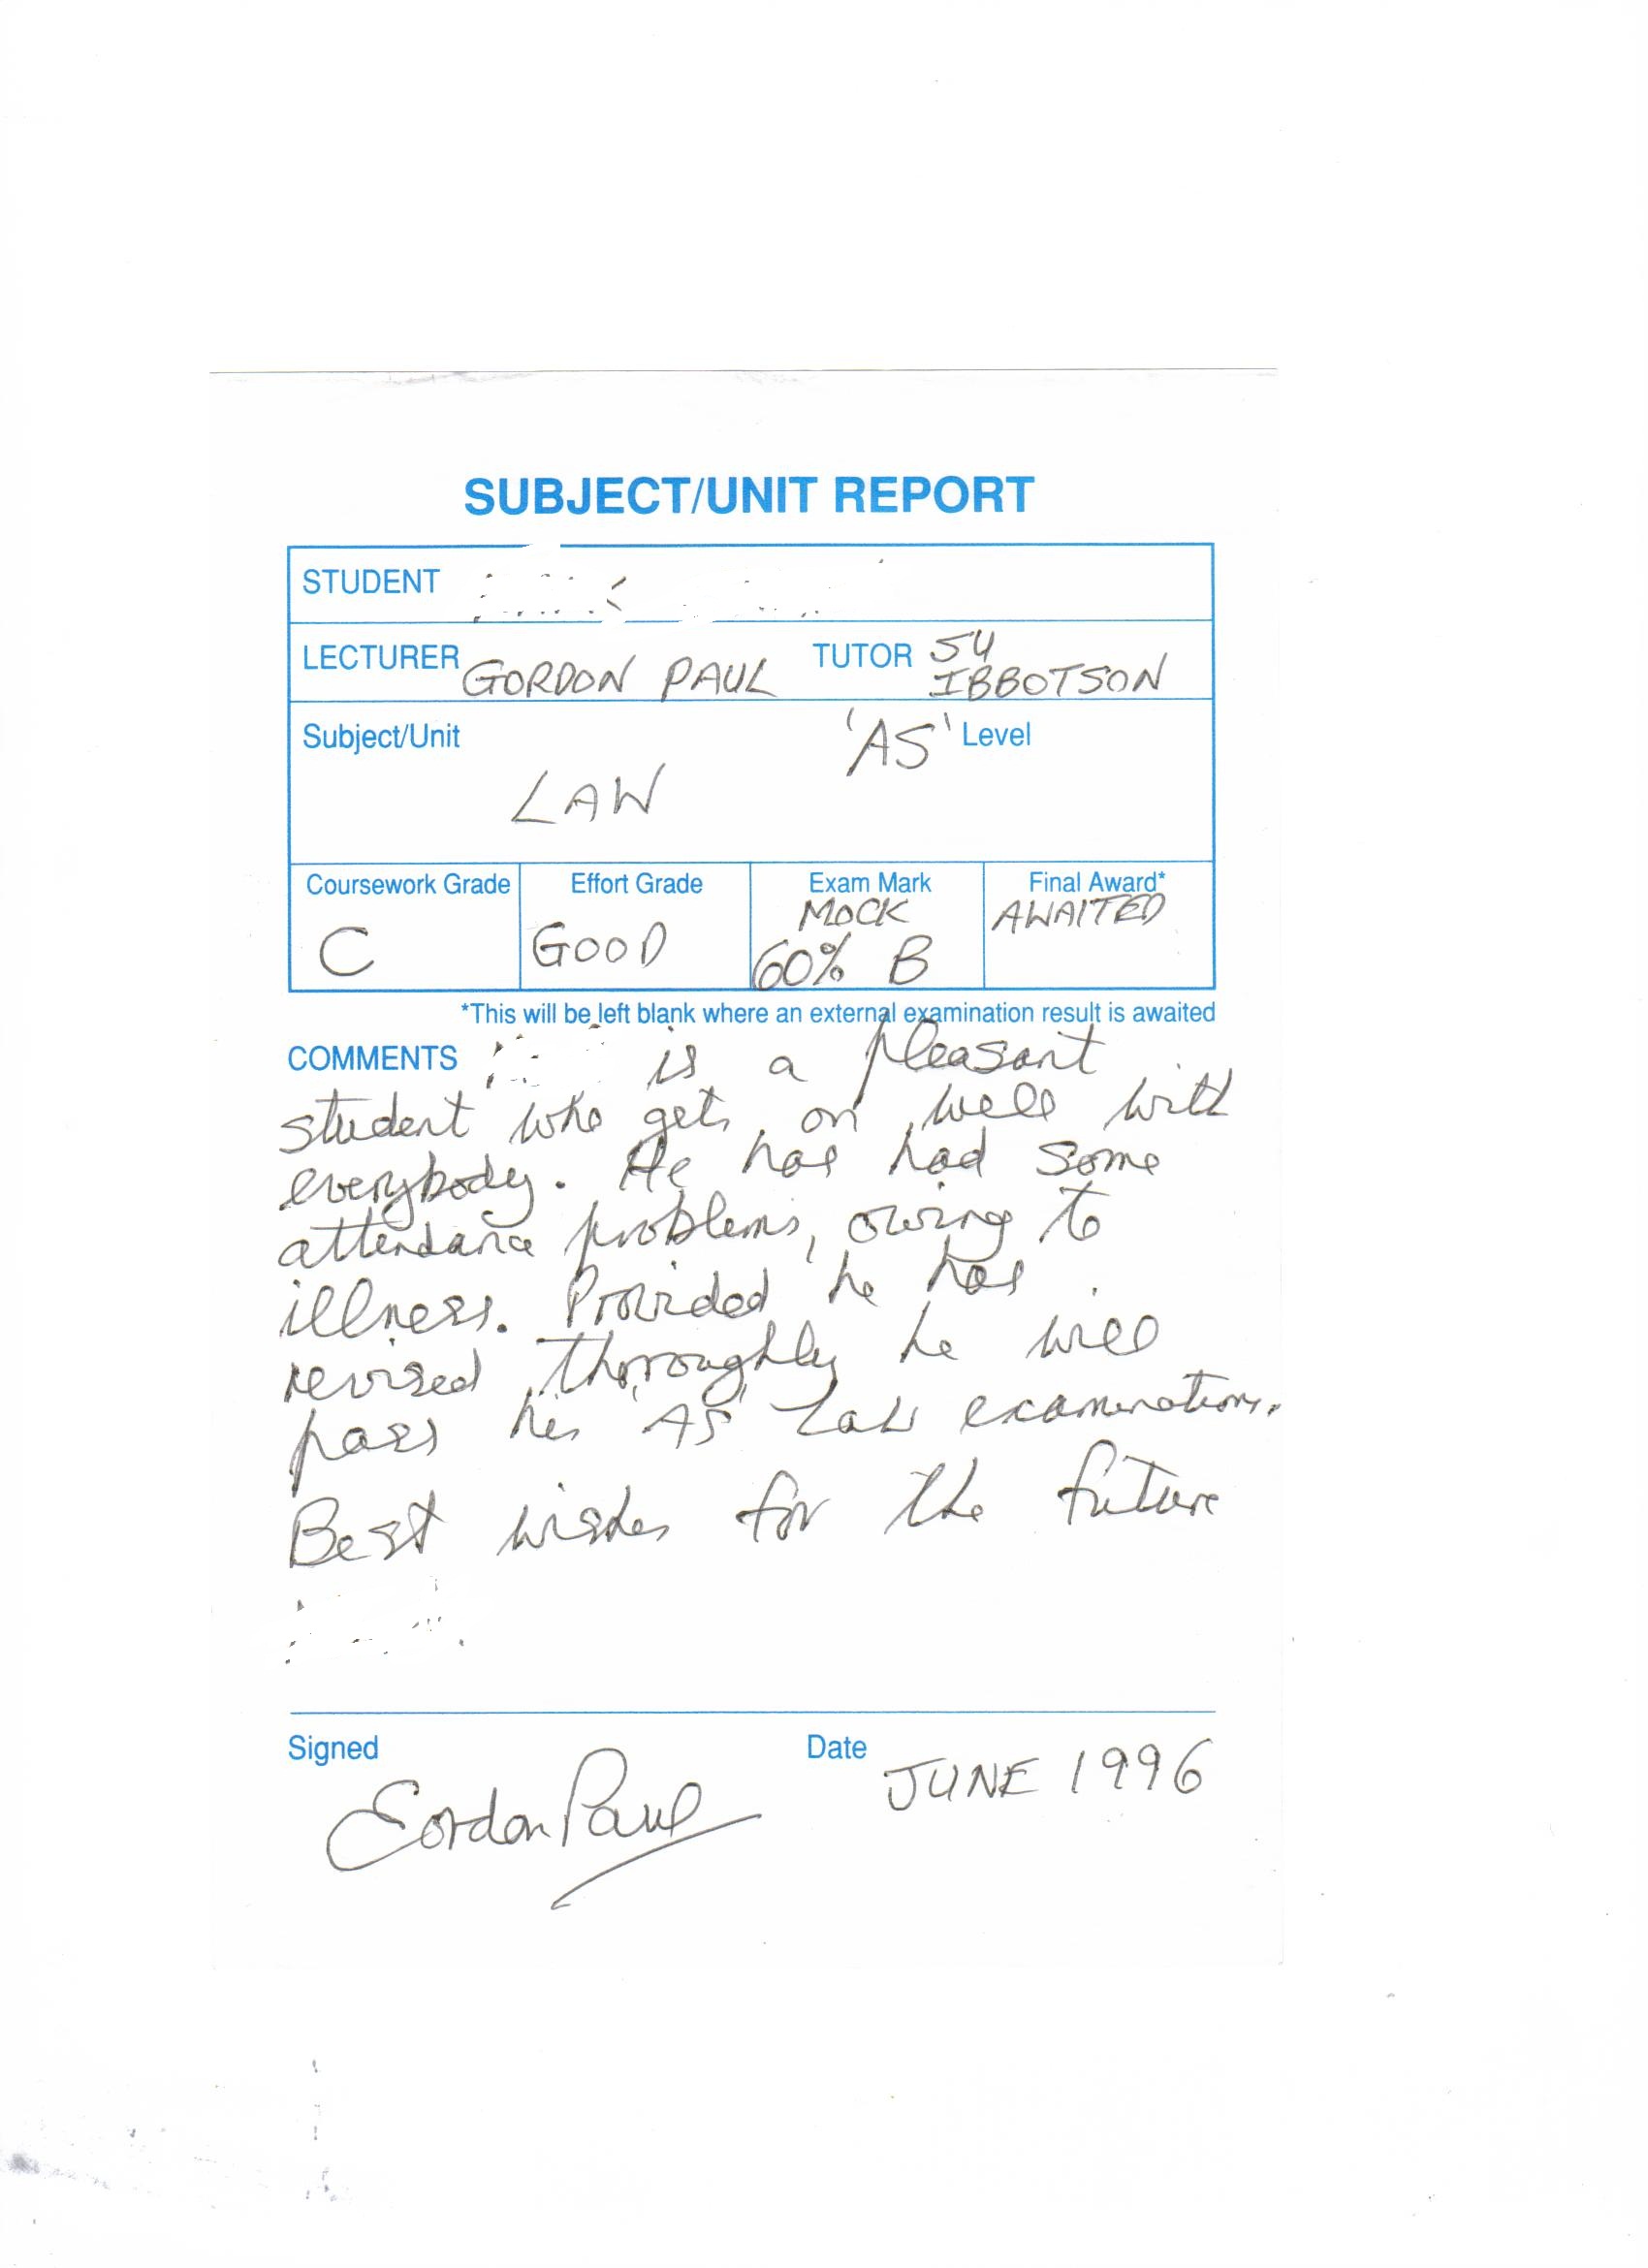 SUBJECT/UNIT REPORT
STUDENT
LECTURER GORDON PAUL TUTOR SU
IBBOTSON
Subject/Unit 'AS' Level
LAW
Coursework Grade Effort Grade Exam Mark Final Award*
MOCK AWAITED
C GOOD 60% B
*This will be left blank where an external examination result is awaited
COMMENTS is a pleasant
student who gets on well with
everybody. He has had some
attendance problems, owing to
illness. Provided he has
revised thoroughly he will
pass his 'AS' Law examination.
Best wishes for the future
Signed Date JUNE 1996
Gordon Paul